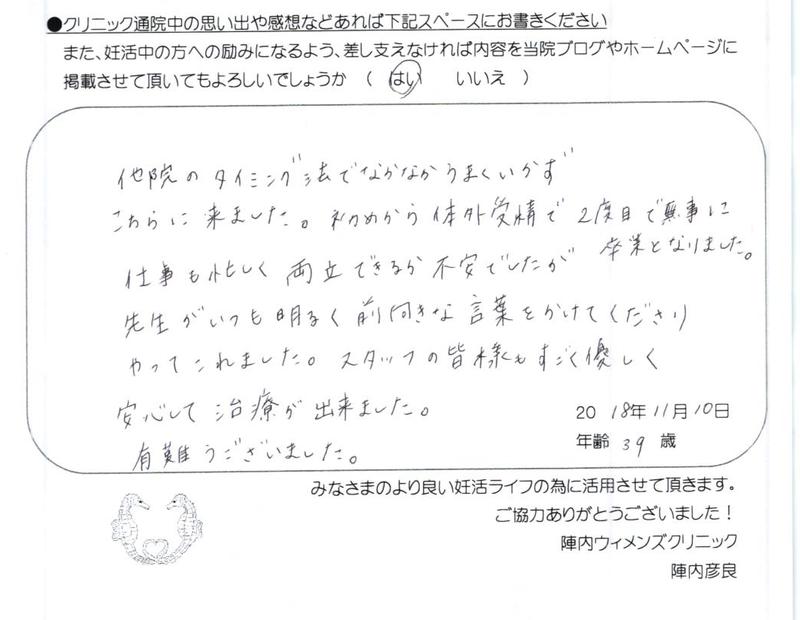 ●クリニック通院中の思い出や感想などあれば下記スペースにお書きください
また、妊活中の方への励みになるよう、差し支えなければ内容を当院ブログやホームページに
掲載させて頂いてもよろしいでしょうか （ はい いいえ ）
他院のタイミング法でなかなかうまくいかず
こちらに来ました。初めから体外受精で2度目で無事に
卒業となりました。
仕事も忙しく両立できるか不安でしたが
先生がいつも明るく前向きな言葉をかけてくださり
やってこれました。スタッフの皆様もすごく優しく
安心して治療が出来ました。
有難うございました。
2018年11月10日
年齢 39 歳
みなさまのより良い妊活ライフの為に活用させて頂きます。
ご協力ありがとうございました！
陣内ウィメンズクリニック
陣内彦良